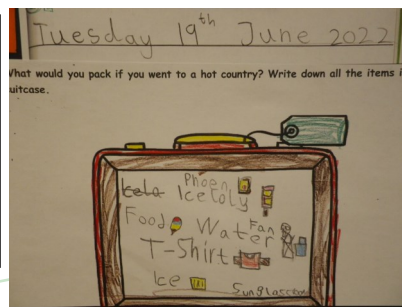 Tuesday 19th June 2022
What would you pack if you went to a hot country? Write down all the items i
uitcase.
Phoen
Icecoly
Food
Water
Fan
T-Shirt
Ice
Sunglasses